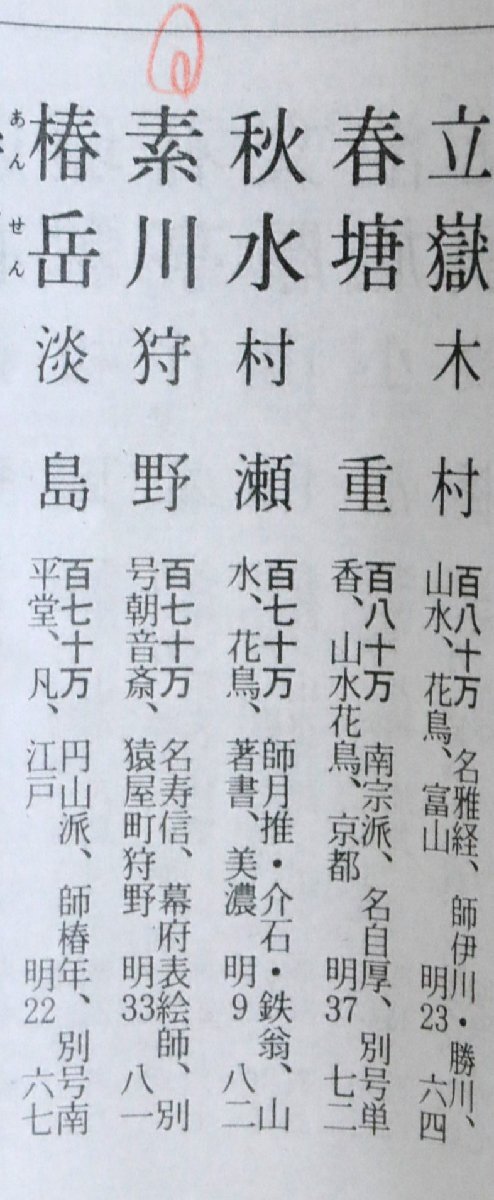 立嶽 木村 百八十万 名雅経、師伊川・勝川、
山水、花鳥、富山 明23 六四
春塘 重 百八十万 南宗派、名自厚、別号単
香、山水花鳥、京都 明37 七二
秋水 村瀬 百七十万 師月推・介石・鉄翁、山
水、花鳥、著書、美濃 明9 八二
素川 狩野 百七十万 名寿信、幕府表絵師、別
号朝音斎、猿屋町狩野 明33 八一
椿岳 淡島 百七十万 円山派、師椿年、別号南
平堂、凡、江戸 明22 六七
あんせん